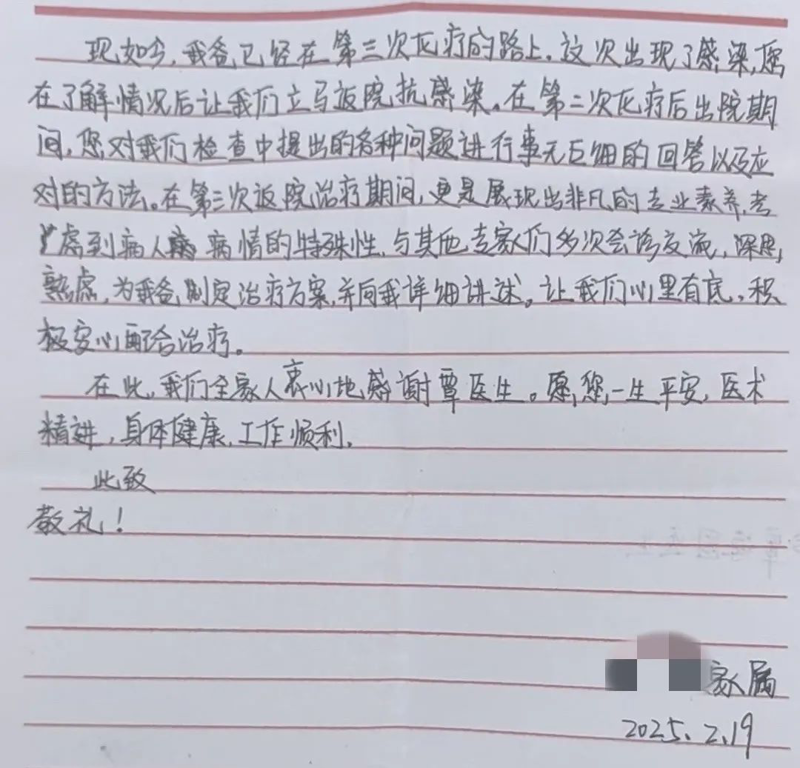 现如今,我爸已经在第三次化疗的路上。这次出现了感染,您
在了解情况后让我们立马返院抗感染。在第二次化疗后出院期
间,您对我们检查中提出的各种问题进行事无巨细的回答以及应
对的方法。在第三次返院治疗期间,更是展现出非凡的专业素养,考
虑到病人病情的特殊性,与其他专家们多次会诊交流,深思
熟虑,为我爸制定治疗方案,并向我详细讲述。让我们心里有底,积
极安心配合治疗。
在此,我们全家人衷心地感谢覃医生。愿您一生平安,医术
精进,身体健康,工作顺利。
此致
敬礼!
家属
2025.2.19